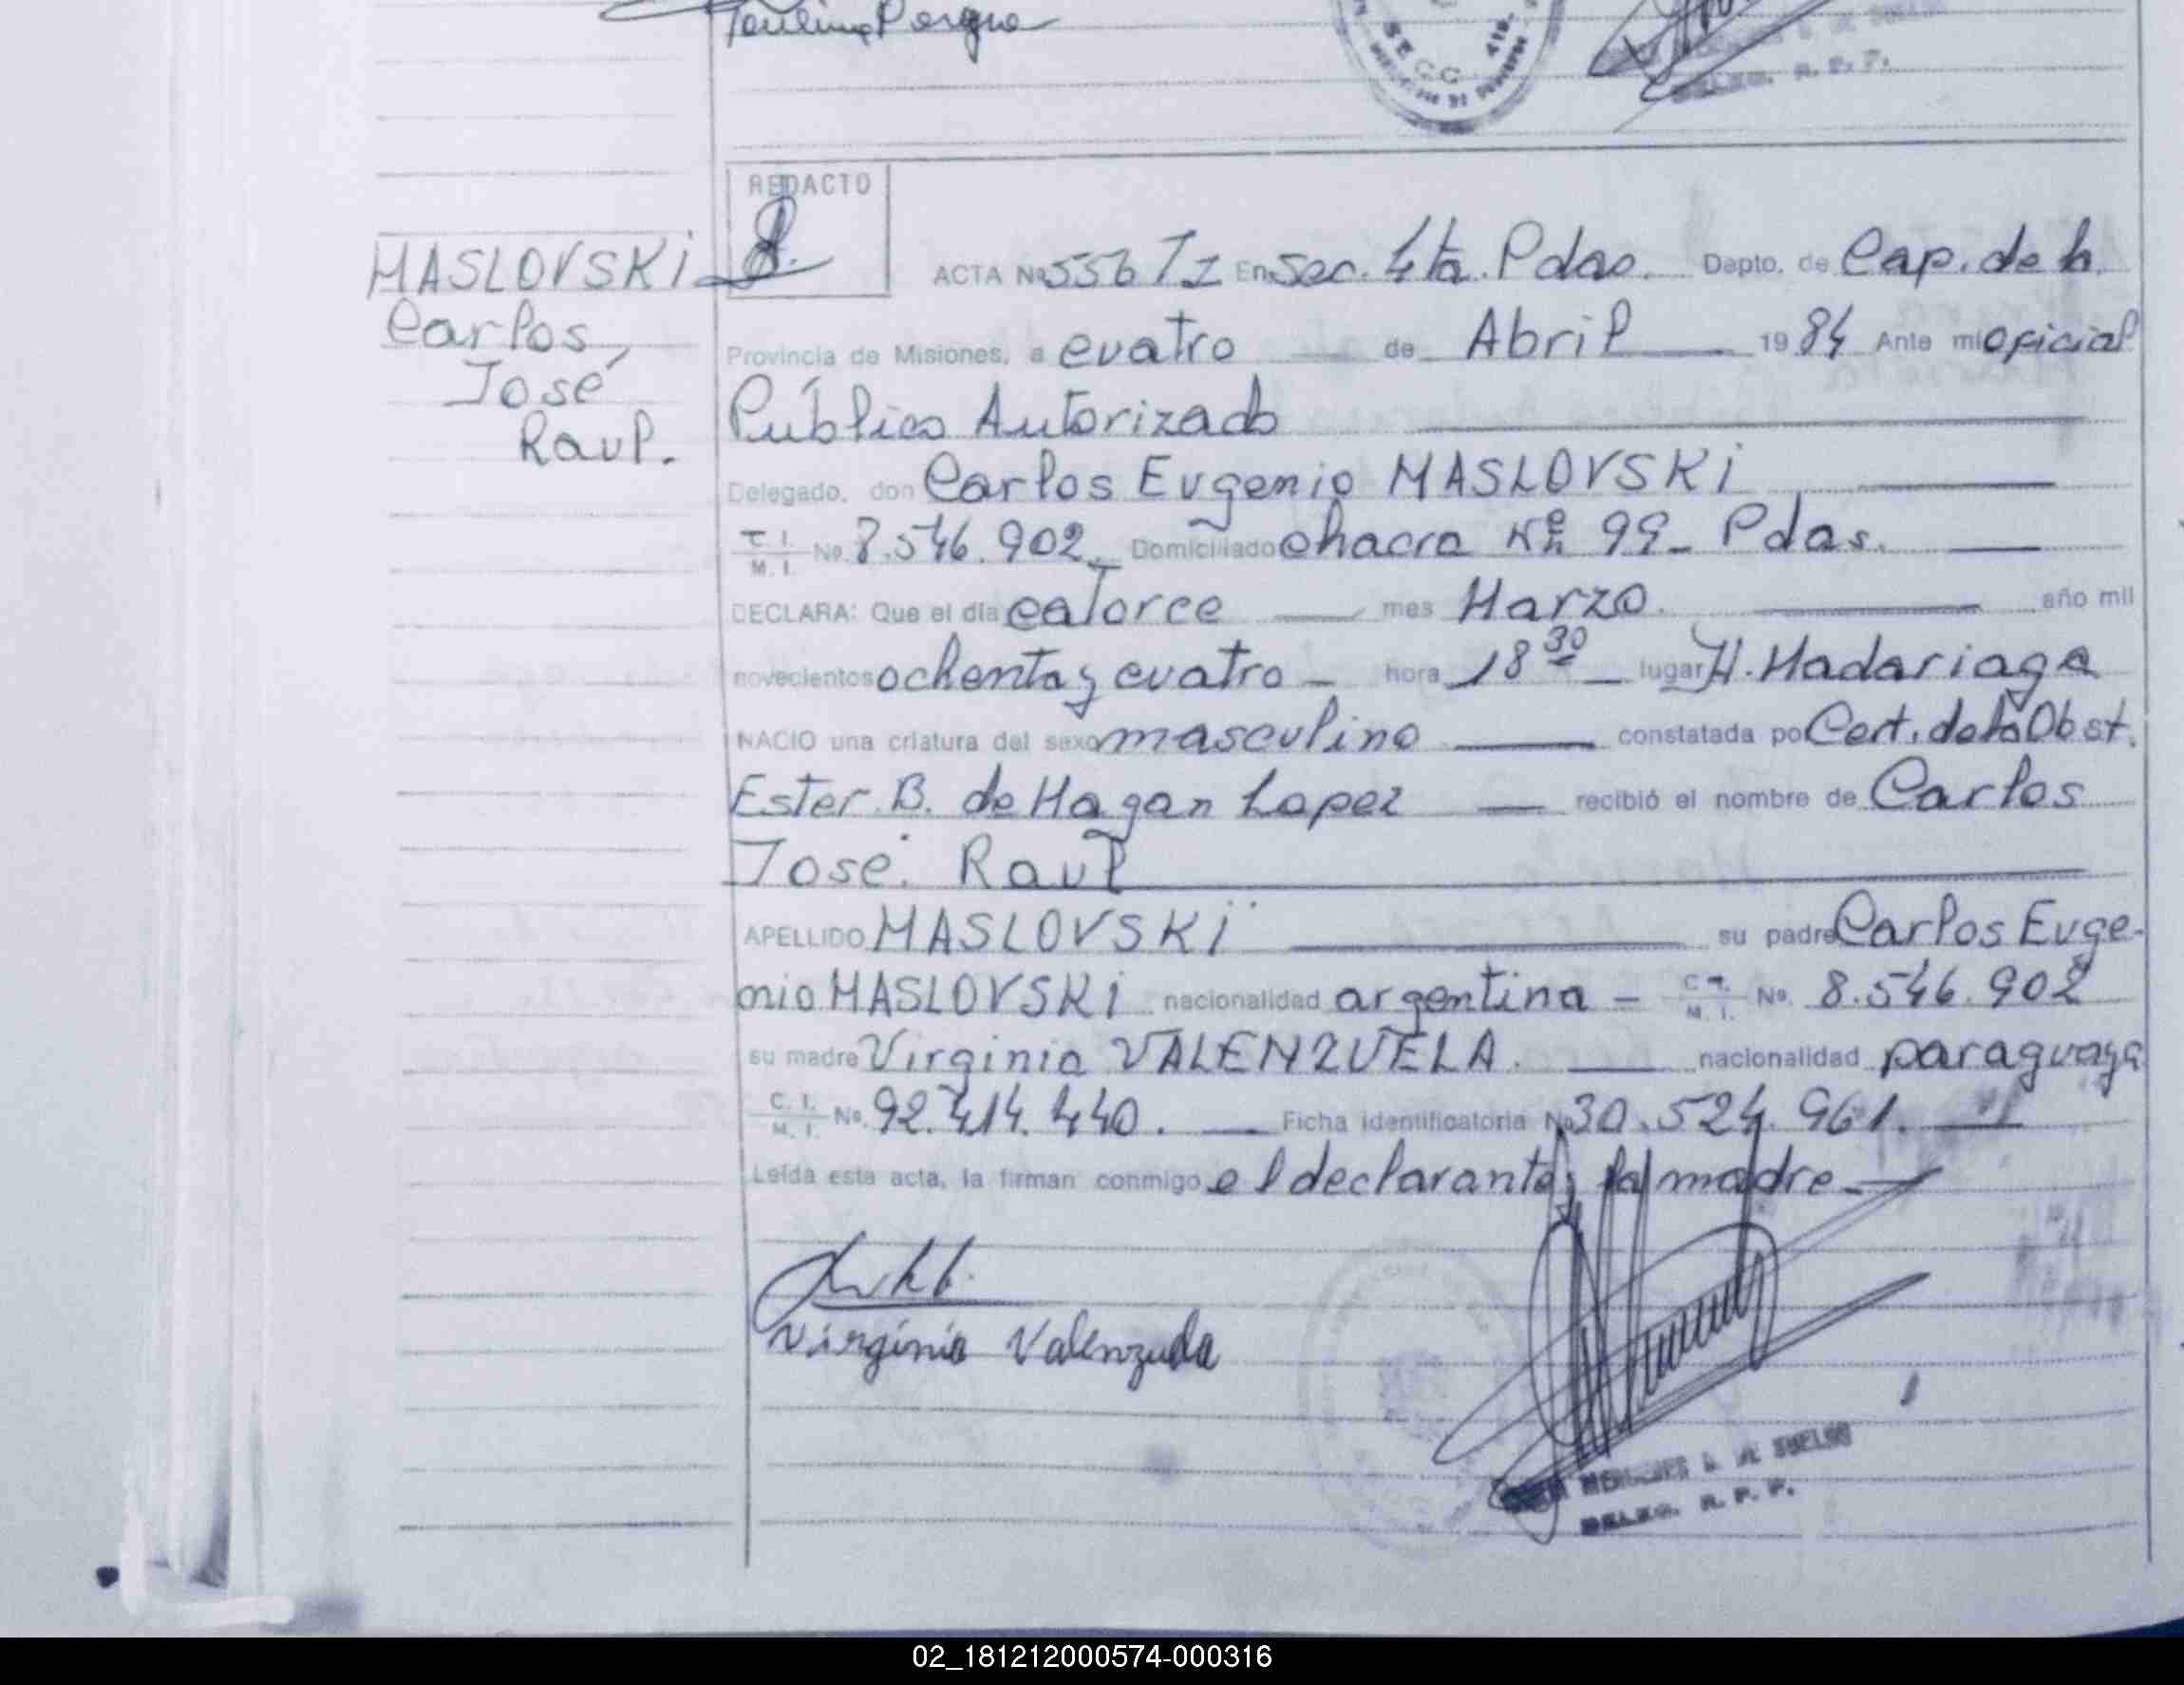 REDACTO
MASLOVSKi
Carlos,
José
Raul.
ACTA Nº 556 T/I En Sec. 4ta. Pdas. Depto. de Cap. de la
Provincia de Misiones, a cuatro de Abril 1984 Ante mi oficial
Público Autorizado
Delegado, don Carlos Eugenio MASLOVSKi
C. I. M. I. No. 8.546.902 Domiciliado chacra Nº 99 - Pdas.
DECLARA: Que el día catorce mes Marzo. año mil
novecientos ochenta y cuatro - hora 18 30 lugar H. Madariaga
NACIO una criatura del sexo masculino constatada por Cert. de la Obst.
Ester B. de Hagan Lopez recibió el nombre de Carlos
José Raul
APELLIDO MASLOVSKi su padre Carlos Euge-
nio MASLOVSKi nacionalidad argentina - C. I. M. I. Nº. 8.546.902
su madre Virginia VALENZUELA. nacionalidad paraguaya
C. I. M. I. Nº. 92.414.440. Ficha identificatoria Nº 30.524.961.
Leída esta acta, la firman conmigo el declarante y la madre.
Virginia Valenzuela
DELEG. R. P. P.
02_181212000574-000316